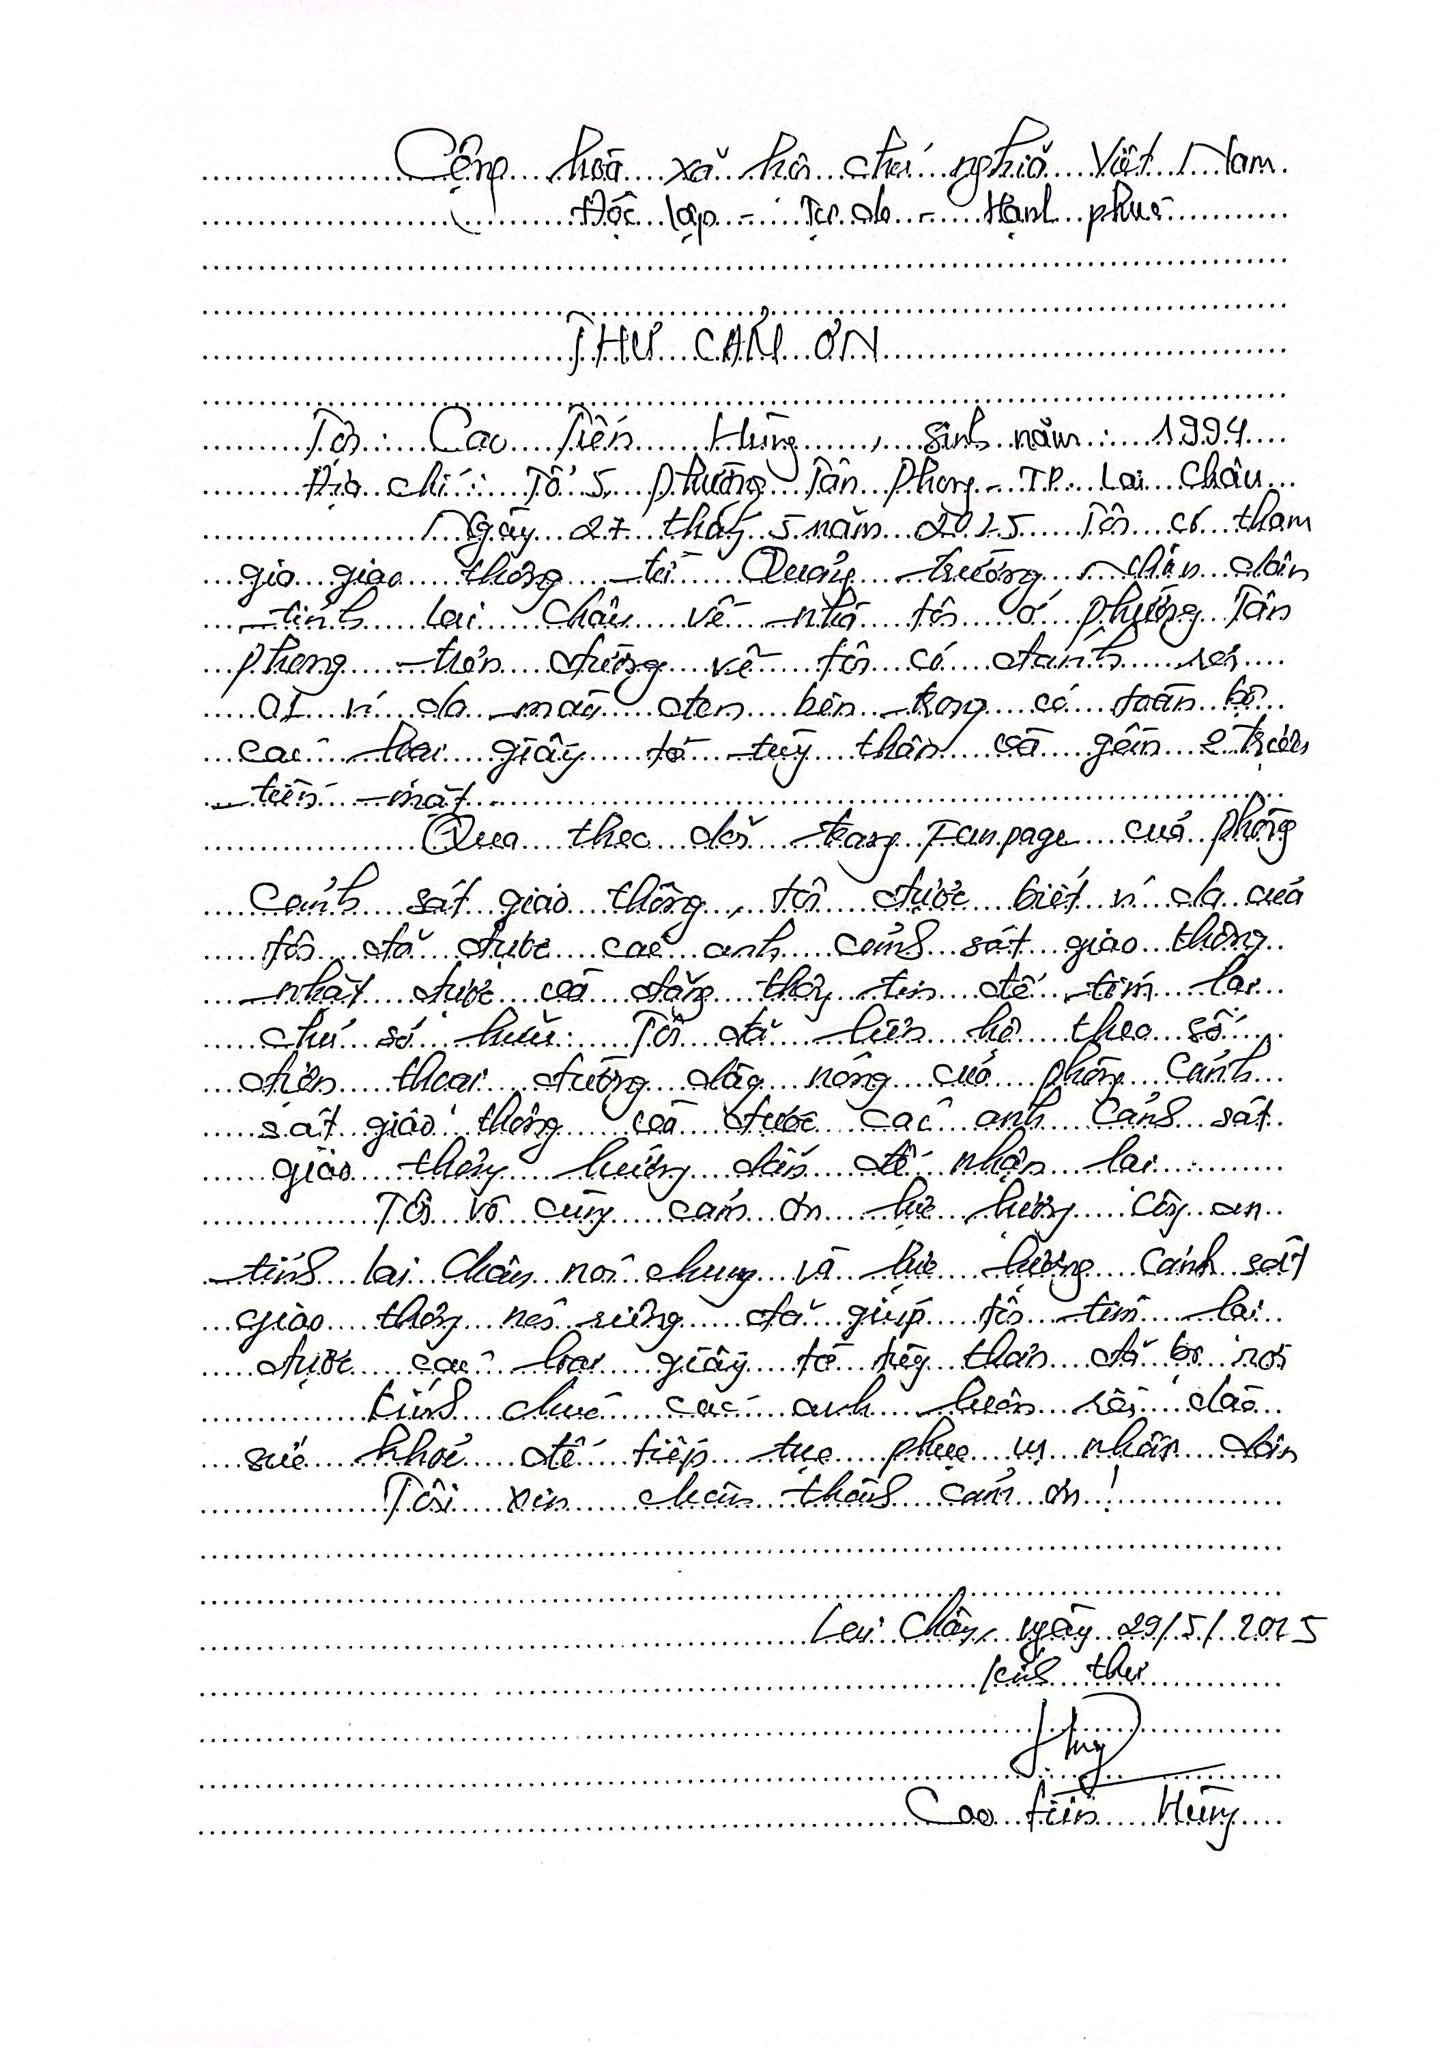 Cộng hoà xã hội chủ nghĩa Việt Nam
Độc lập - Tự do - Hạnh phúc
THƯ CẢM ƠN
Tôi: Cao Tiến Hùng, sinh năm: 1994
Địa chỉ: Tổ 5, phường Tân Phong - TP. Lai Châu
Ngày 27 tháng 5 năm 2025 Tôi có tham
gia giao thông từ Quảng trường nhân dân
tỉnh Lai Châu về nhà tôi ở phường Tân
phong trên đường về tôi có đánh rơi
01 ví da màu đen bên trong có toàn bộ
các loại giấy tờ tùy thân và gần 2 triệu
tiền mặt.
Qua theo dõi trang Fanpage của phòng
Cảnh sát giao thông, tôi được biết ví da của
tôi đã được các anh cảnh sát giao thông
nhặt được và đăng thông tin để tìm lại
chủ sở hữu. Tôi đã liên hệ theo số
điện thoại đường dây nóng của phòng Cảnh
sát giao thông và được các anh Cảnh sát
giao thông hướng dẫn để nhận lại.
Tôi vô cùng cảm ơn lực lượng Công an
tỉnh Lai Châu nói chung và lực lượng Cảnh sát
giao thông nói riêng đã giúp tôi tìm lại
được các loại giấy tờ tùy thân đã bị rơi
Kính chúc các anh luôn dồi dào
sức khoẻ để tiếp tục phục vụ nhân dân
Tôi xin chân thành cảm ơn!
Lai Châu, ngày 29/5/2025
Kính thư
Hùng
Cao Tiến Hùng